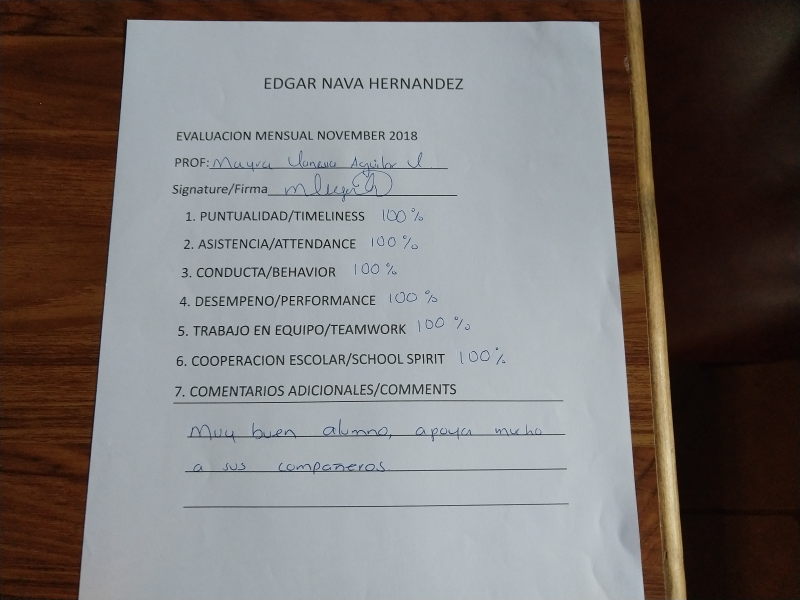 EDGAR NAVA HERNANDEZ
EVALUACION MENSUAL NOVEMBER 2018
PROF: Mayra Vanessa Aguilar
Signature/Firma
1. PUNTUALIDAD/TIMELINESS 100%
2. ASISTENCIA/ATTENDANCE 100%
3. CONDUCTA/BEHAVIOR 100%
4. DESEMPENO/PERFORMANCE 100%
5. TRABAJO EN EQUIPO/TEAMWORK 100%
6. COOPERACION ESCOLAR/SCHOOL SPIRIT 100%
7. COMENTARIOS ADICIONALES/COMMENTS
Muy buen alumno, apoya mucho
a sus compañeros